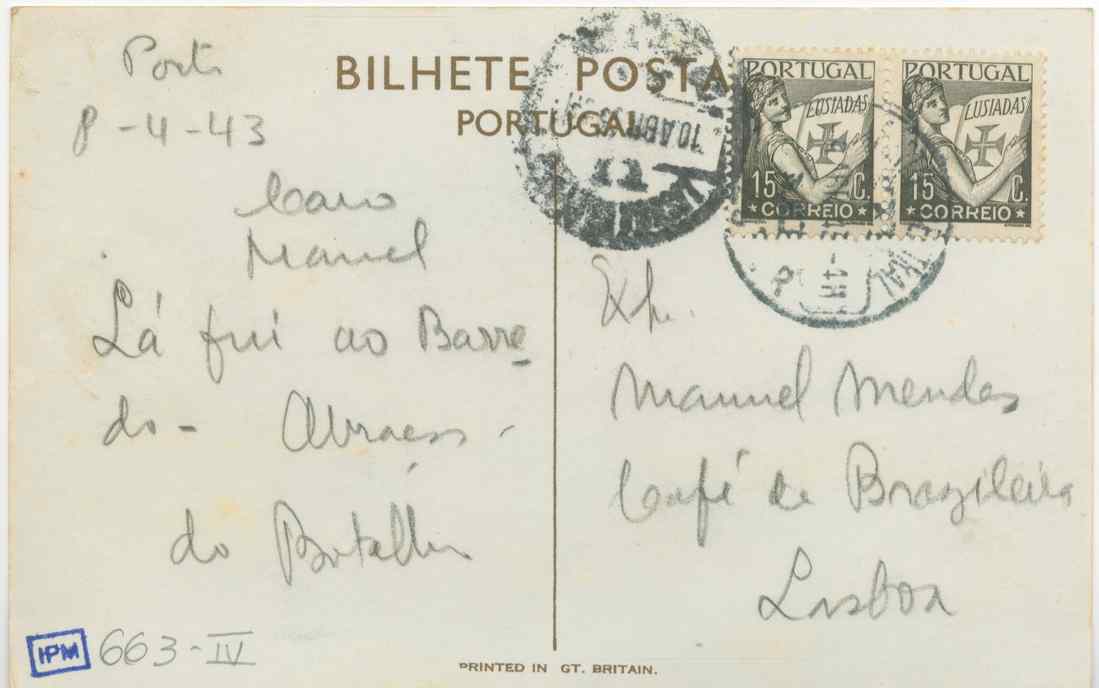 BILHETE POSTA
PORTUGAL
Porto
8-4-43
Caro
Manuel
Lá fui ao Barre
do - Abraços
do Botelho
PORTUGAL
LUSIADAS
15 C.
* CORREIO *
PORTUGAL
LUSIADAS
15 C.
* CORREIO *
10 ABR
Manuel Mendes
Café de Brazileira
Lisboa
IPM 663-IV
PRINTED IN GT. BRITAIN.